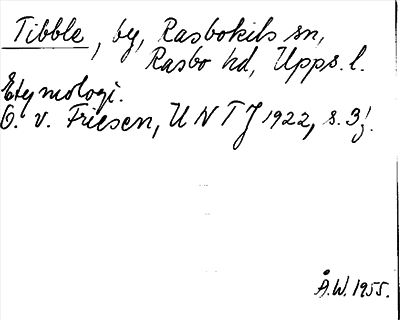 Tibble, by, Rasbokils sn,
Rasbo hd, Upps. l.
Etymologi.
O. v. Friesen, UNTJ 1922, s. 3f.
Å.W. 1955.